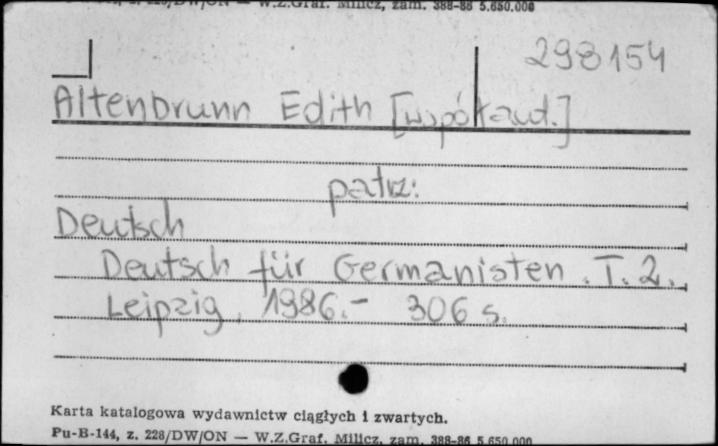 W.Z.Graf. Milicz, zam. 388-86 5.650.000
298154
Altenbrunn Edith [współaut.]
patrz:
Deutsch
Deutsch für Germanisten. T. 2.
Leipzig, 1986.- 306 s.
Karta katalogowa wydawnictw ciągłych i zwartych.
Pu-B-144, z. 228/DW/ON — W.Z.Graf. Milicz, zam. 388-86 5.650.000